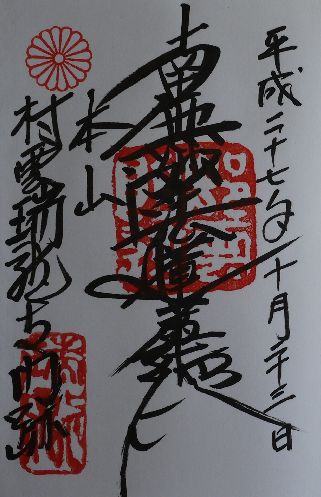 平成二十七年十月二十三日
南無妙法蓮華経
本山
村雲瑞龍寺門跡